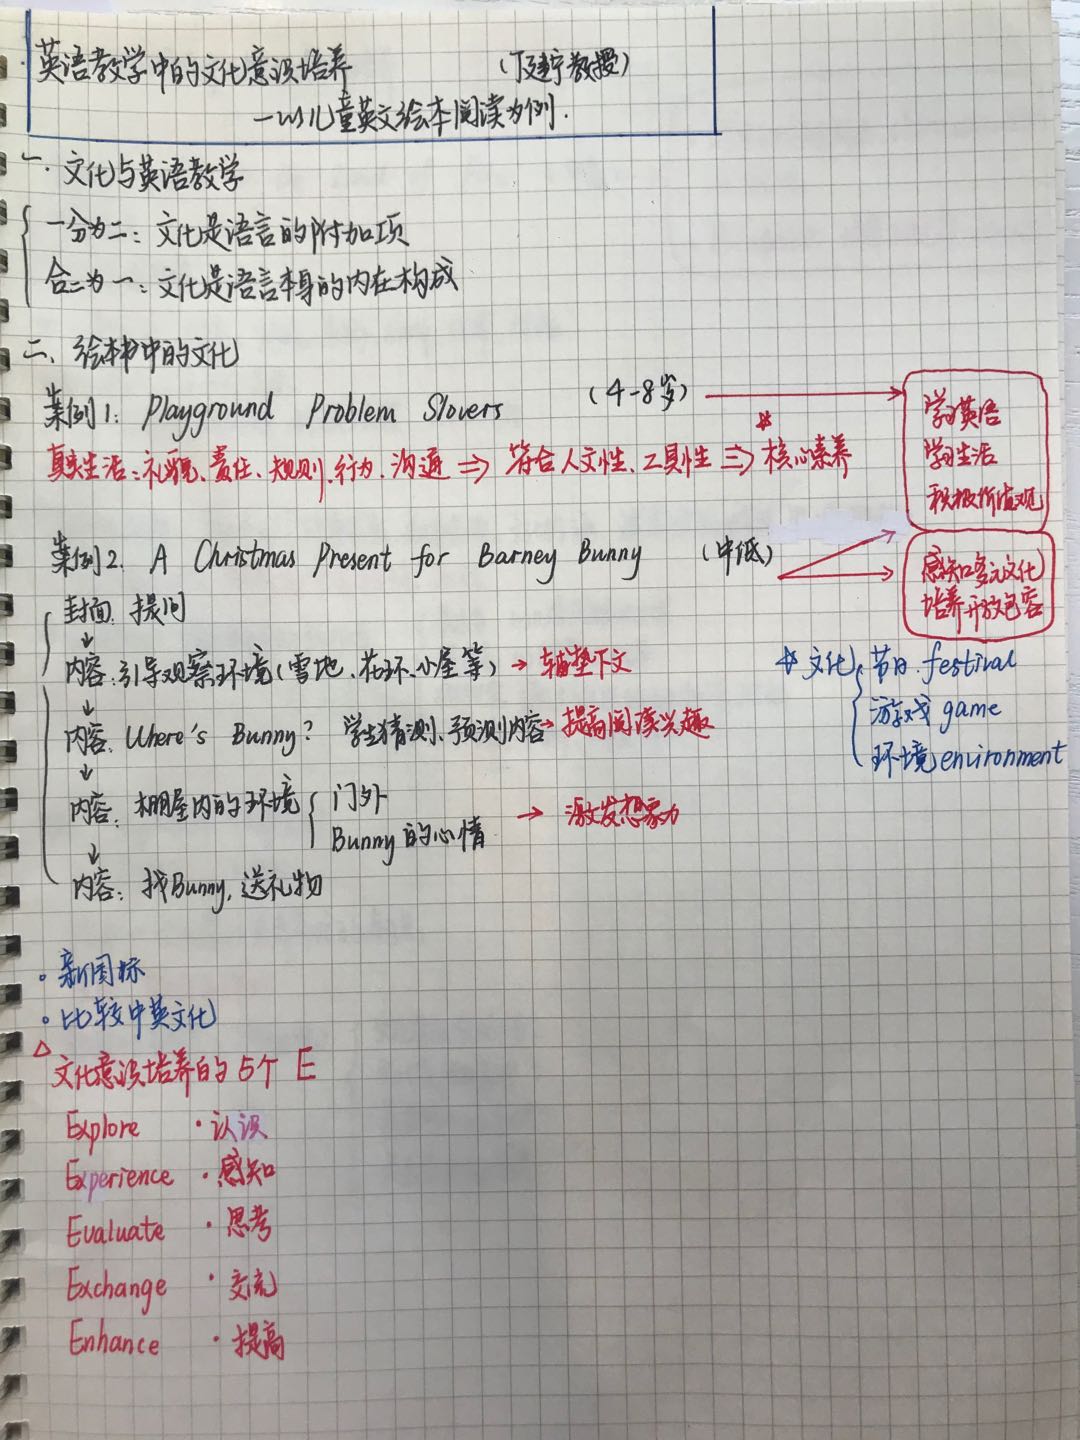 英语教学中的文化意识培养 (丁建宁教授)
—以儿童英文绘本阅读为例.
一.文化与英语教学
一分为二：文化是语言的附加项
合二为一：文化是语言本身的内在构成
二、绘本中的文化
案例1: Playground Problem Slovers (4-8岁)
真实生活：礼貌、责任、规则、行为、沟通 ⇒ 符合人文性、工具性 ⇒ 核心素养
学习英语
学习生活
积极价值观
案例2. A Christmas Present for Barney Bunny (中低)
感知多元文化
培养开放包容
封面. 提问
↓
内容:引导观察环境(雪地、花环、小屋等) → 铺垫下文
↓
内容. Where's Bunny? 学生猜测、预测内容 → 提高阅读兴趣
↓
内容: 棚屋内的环境 门外
Bunny的心情 → 激发想象力
↓
内容: 找Bunny, 送礼物
* 文化 节日 festival
游戏 game
环境 environment
。新国标
。比较中英文化
△ 文化意识培养的5个E
Explore ·认识
Experience ·感知
Evaluate ·思考
Exchange ·交流
Enhance ·提高